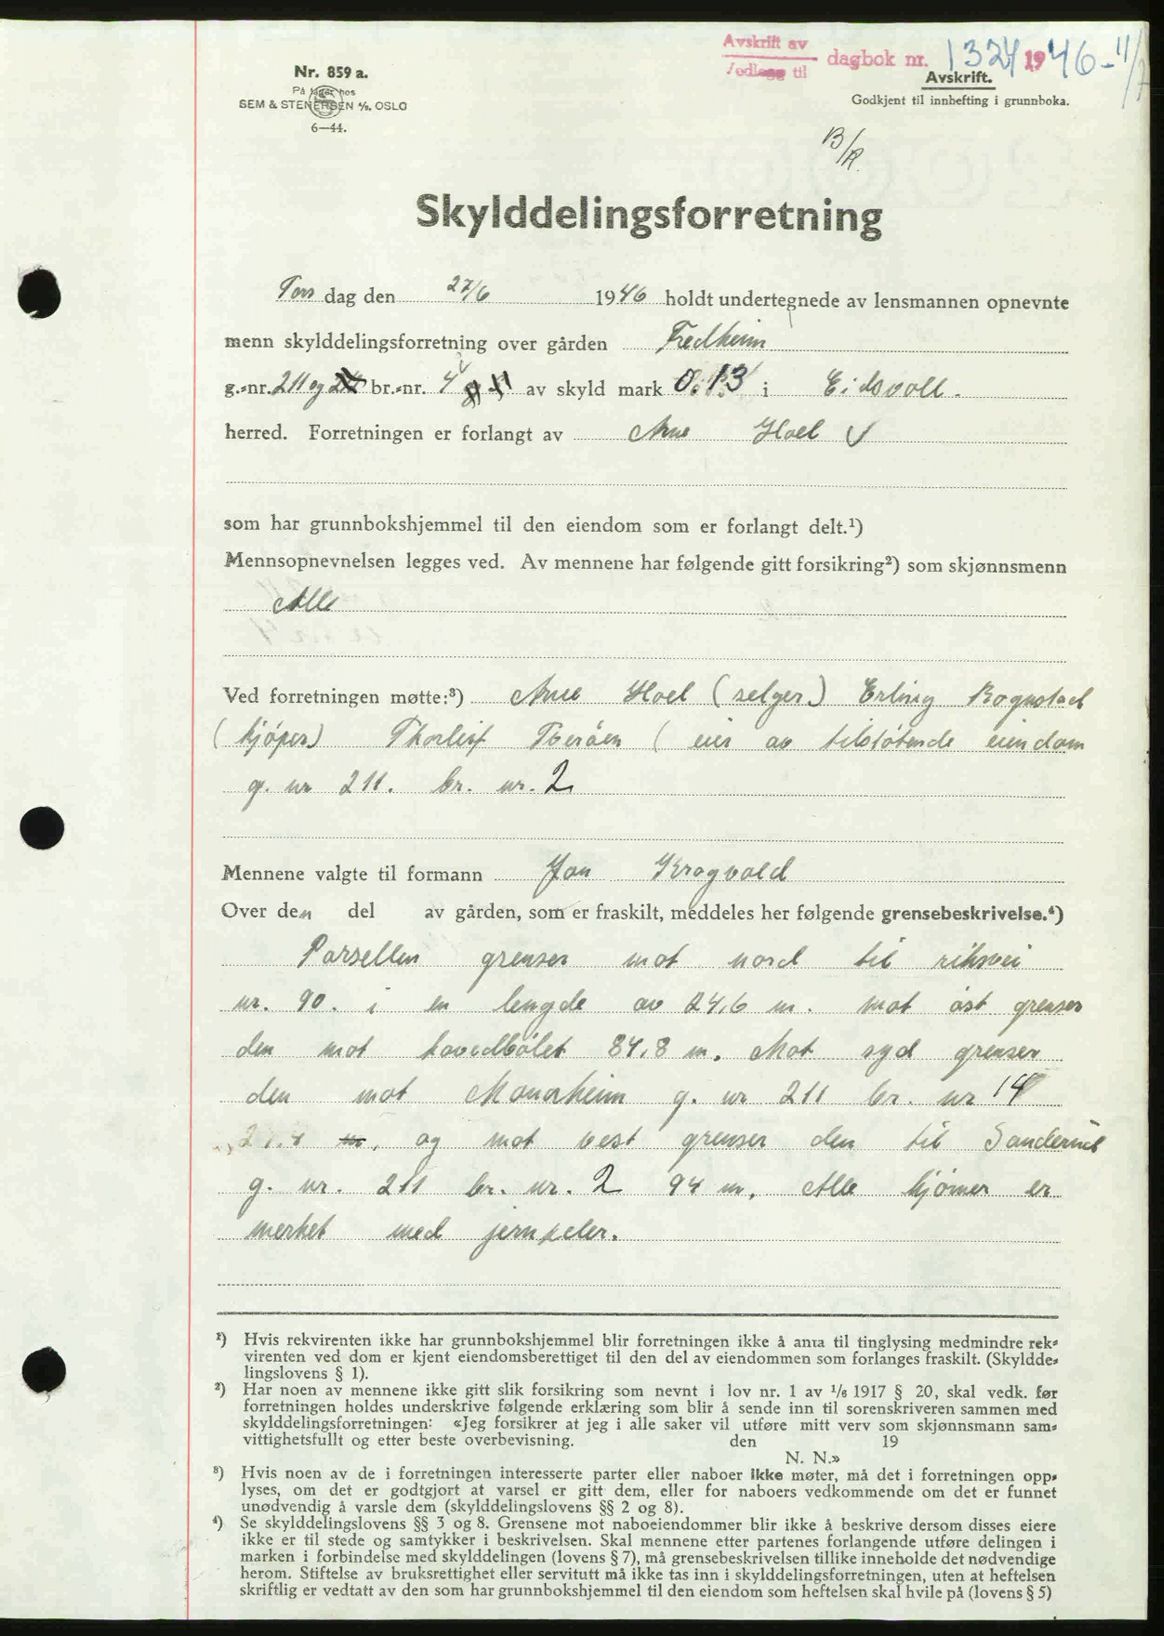 Avskrift av
Vedlegg til dagbok nr. 1324 1946 - 11/7
Nr. 859 a.
På lager hos
SEM & STENERSEN A/S. OSLO
6—44.
Avskrift.
Godkjent til innhefting i grunnboka.
B/R.
Skylddelingsforretning
Tors dag den 27/6 1946 holdt undertegnede av lensmannen opnevnte
menn skylddelingsforretning over gården Fredheim
g.-nr. 211 og br.-nr. 4 av skyld mark 0.13 i Eidsvoll.
herred. Forretningen er forlangt av Arne Hoel
som har grunnbokshjemmel til den eiendom som er forlangt delt.¹)
Mennsopnevnelsen legges ved. Av mennene har følgende gitt forsikring²) som skjønnsmenn
Alle
Ved forretningen møtte:³) Arne Hoel (selger) Erling Rognstad
(kjøper) Thorleif (eier av tilstøtende eiendom
g. nr 211. br. nr. 2
Mennene valgte til formann Jon Krogvold
Over den del av gården, som er fraskilt, meddeles her følgende grensebeskrivelse.⁴)
Parsellen grenser mot nord til riksvei
nr. 90. i en lengde av 24,6 m. mot øst grenser
den mot hovedbølet 84,8 m. Mot syd grenser
den mot g. nr 211 br. nr 14
m, og mot vest grenser den til
g. nr. 211 br. nr. 2 94 m, Alle hjørner er
merket med jernpeler.
¹) Hvis rekvirenten ikke har grunnbokshjemmel blir forretningen ikke å anta til tinglysing medmindre rek-
virenten ved dom er kjent eiendomsberettiget til den del av eiendommen som forlanges fraskilt. (Skyldde-
lingslovens § 1).
²) Har noen av mennene ikke gitt slik forsikring som nevnt i lov nr. 1 av 1/6 1917 § 20, skal vedk. før
forretningen holdes underskrive følgende erklæring som blir å sende inn til sorenskriveren sammen med
skylddelingsforretningen: «Jeg forsikrer at jeg i alle saker vil utføre mitt verv som skjønnsmann sam-
vittighetsfullt og etter beste overbevisning. den 19
N. N.»
³) Hvis noen av de i forretningen interesserte parter eller naboer ikke møter, må det i forretningen opp-
lyses, om det er godtgjort at varsel er gitt dem, eller for naboers vedkommende om det er funnet
unødvendig å varsle dem (skylddelingslovens §§ 2 og 8).
⁴) Se skylddelingslovens §§ 3 og 8. Grensene mot naboeiendommer blir ikke å beskrive dersom disses eiere
ikke er til stede og samtykker i beskrivelsen. Skal mennene etter partenes forlangende utføre delingen i
marken i forbindelse med skylddelingen (lovens § 7), må grensebeskrivelsen tillike inneholde det nødvendige
herom. Stiftelse av bruksrettighet eller servitutt må ikke tas inn i skylddelingsforretningen, uten at heftelsen
skriftlig er vedtatt av den som har grunnbokshjemmel til den eiendom som heftelsen skal hvile på (lovens § 5)